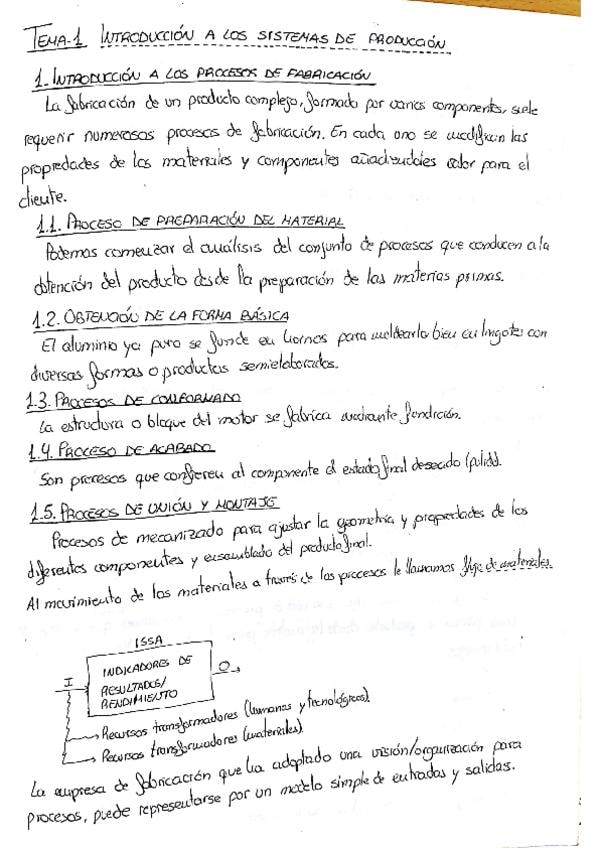 TEMA-1 INTRODUCCIÓN A LOS SISTEMAS DE PRODUCCIÓN
1.-INTRODUCCIÓN A LOS PROCESOS DE FABRICACIÓN
La fabricación de un producto complejo, formado por varios componentes, suele
requerir numerosos procesos de fabricación. En cada uno se modifican las
propiedades de los materiales y componentes añadiendoles valor para el
cliente.
1.1. PROCESO DE PREPARACIÓN DEL MATERIAL
Podemos comenzar el análisis del conjunto de procesos que conducen a la
obtención del producto desde la preparación de las materias primas.
1.2. OBTENCIÓN DE LA FORMA BÁSICA
El aluminio ya puro se funde en hornos para moldearlo bien en lingotes con
diversas formas o productos semielaborados.
1.3. PROCESOS DE CONFORMADO
La estructura o bloque del motor se fabrica mediante fundición.
1.4. PROCESO DE ACABADO
Son procesos que confieren al componente el estado final deseado (pulido).
1.5. PROCESOS DE UNIÓN Y MONTAJE
Procesos de mecanizado para ajustar la geometría y propiedades de los
diferentes componentes y ensamblado del producto final.
Al movimiento de los materiales a través de los procesos le llamamos flujo de materiales.
ISSA
I
INDICADORES DE
RESULTADOS/
RENDIMIENTO
O
Recursos transformadores (humanos y tecnológicos).
Recursos transformadores (materiales).
La empresa de fabricación que ha adoptado una visión/organización para
procesos, puede representarse por un modelo simple de entradas y salidas.